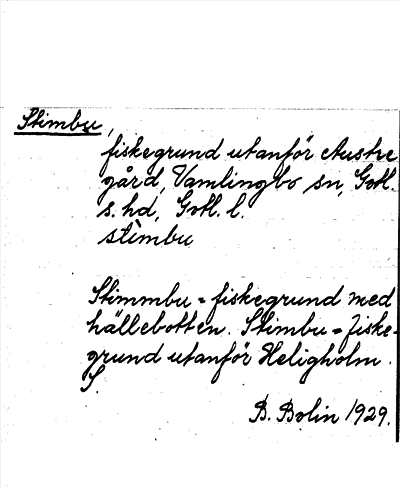 Stimbu,
fiskegrund utanför Austre
gård, Vamlingbo sn, Gotl.
s. hd, Gotl. l.
stìmbu
Stimmbu = fiskegrund med
hällebotten. Stimbu = fiske-
grund utanför Heligholm.
S.
B. Bolin 1929.